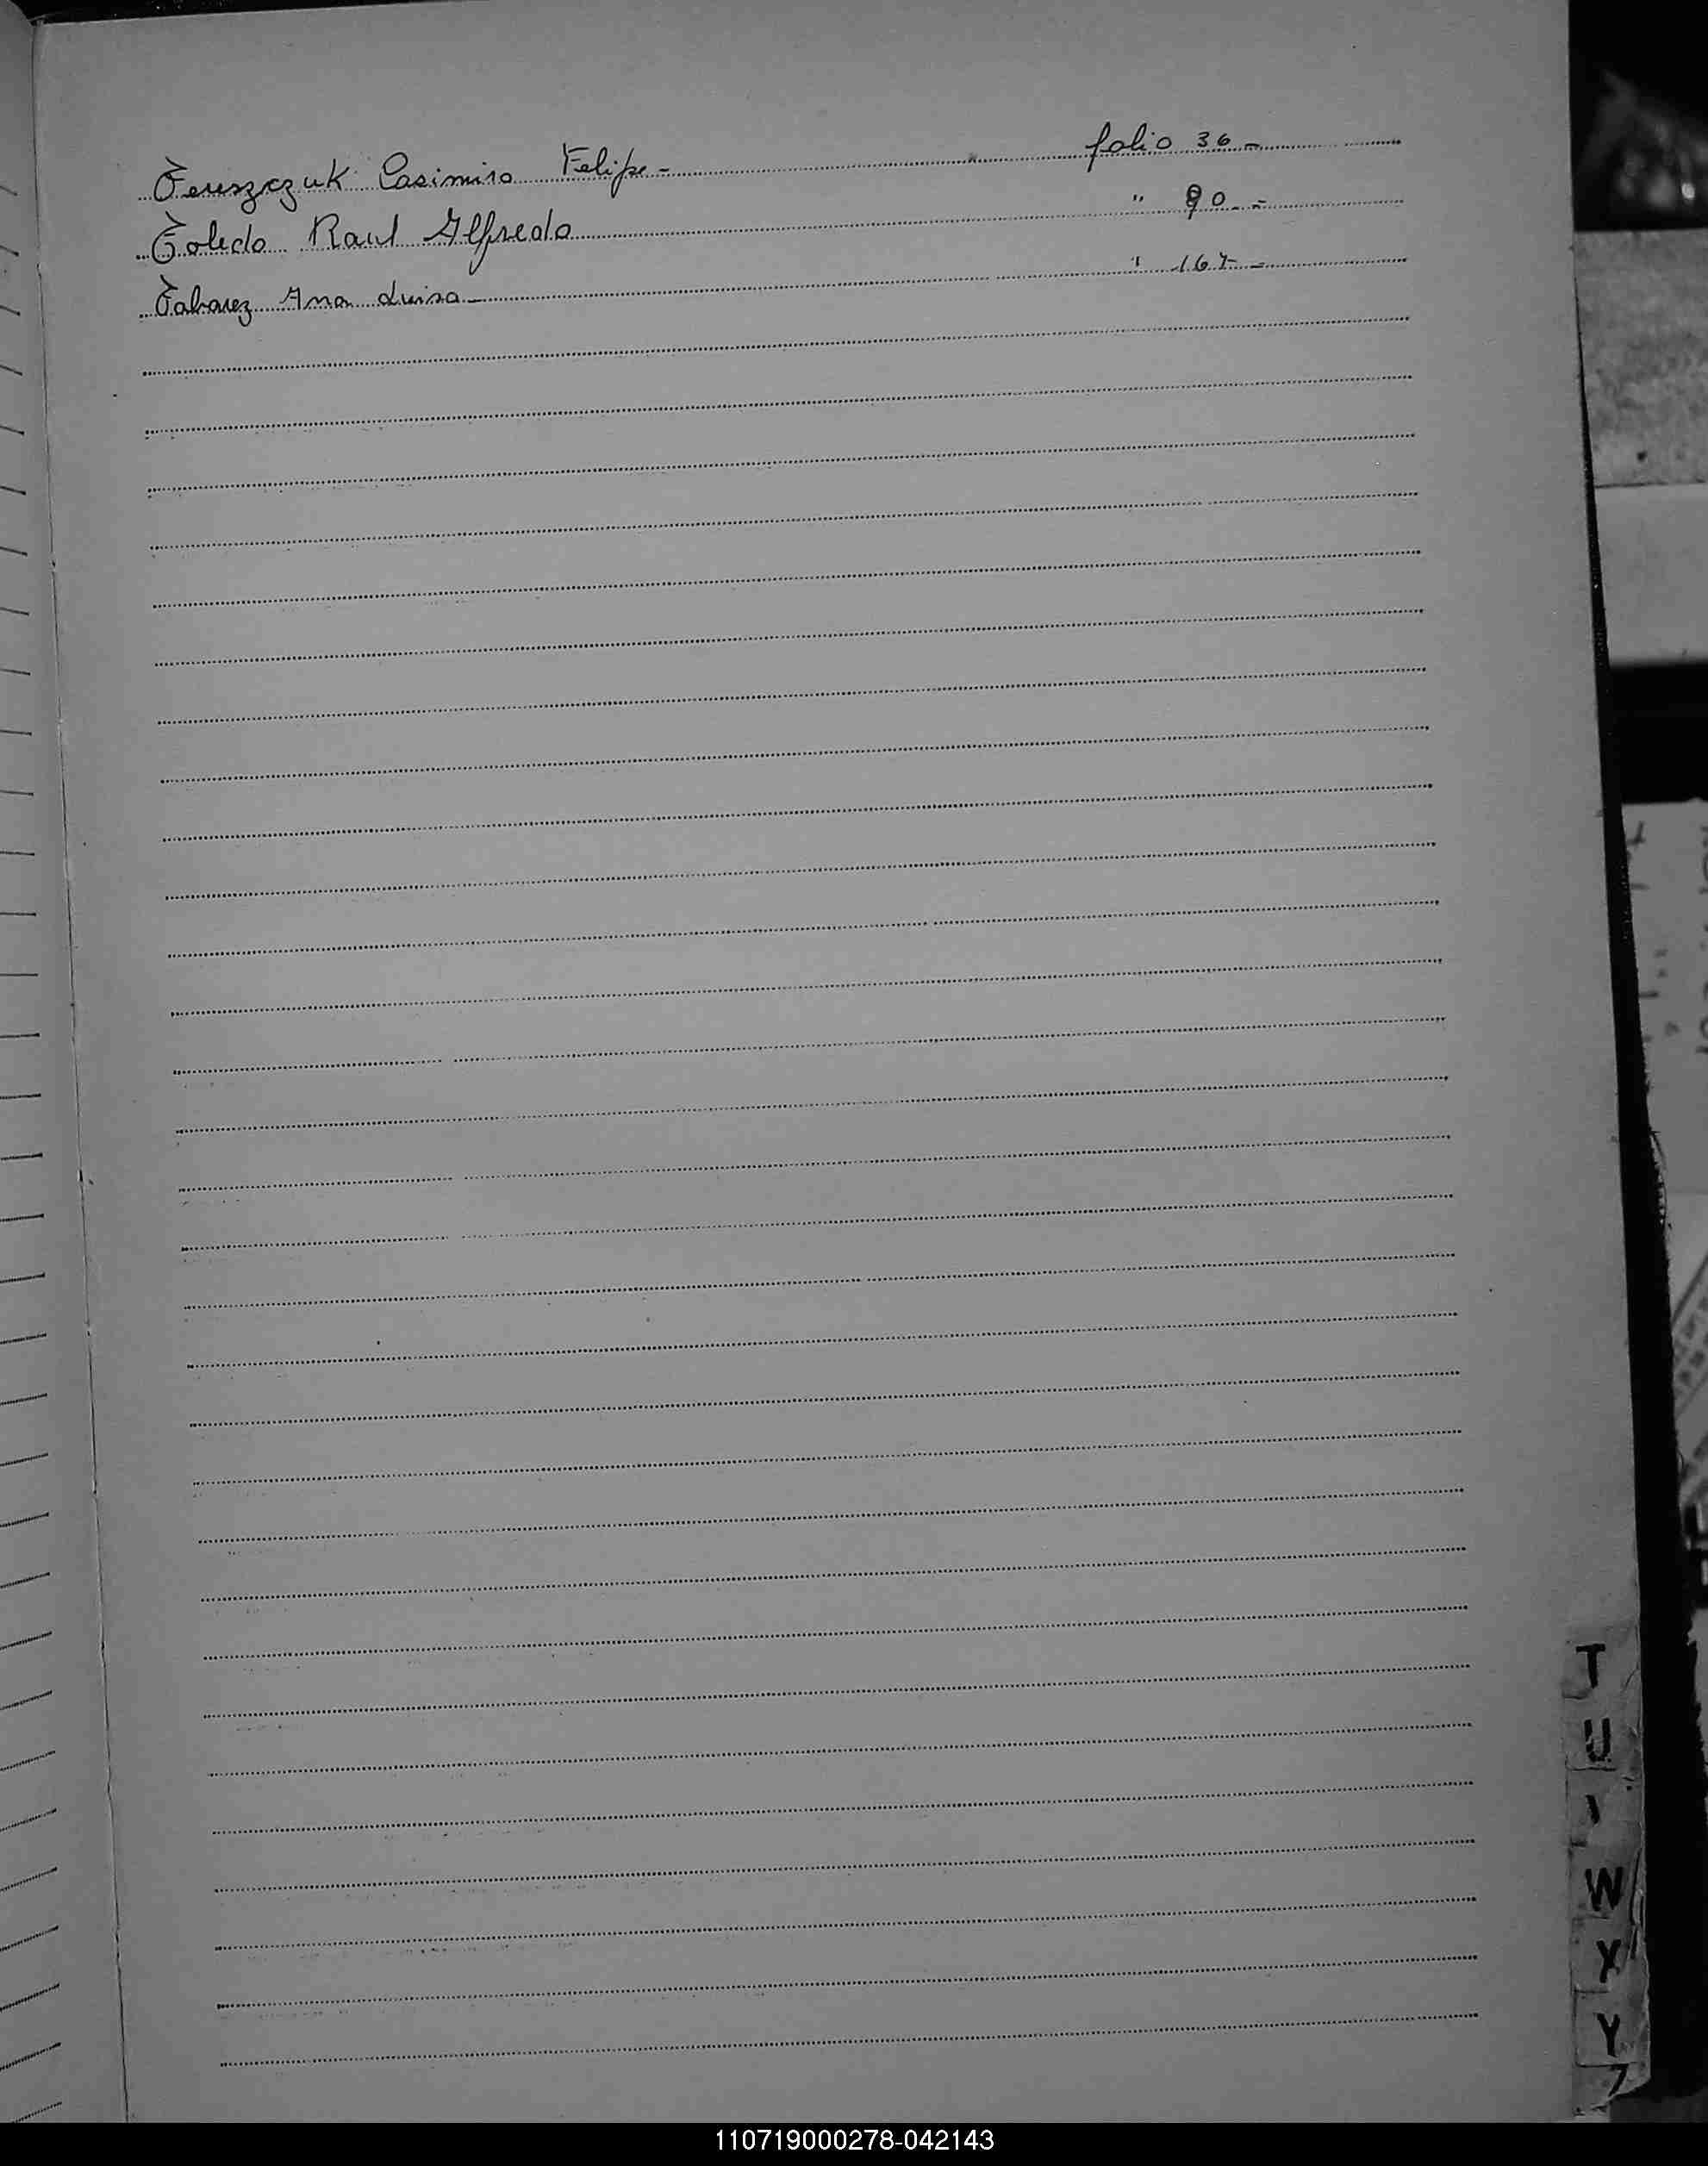 Tereszczuk Casimiro Felipe - folio 36 -
Toledo Raul Alfredo " 90 - =
Tabarez Ana Luisa - " 167 -
T
U
W
X
Y
Z
110719000278-042143